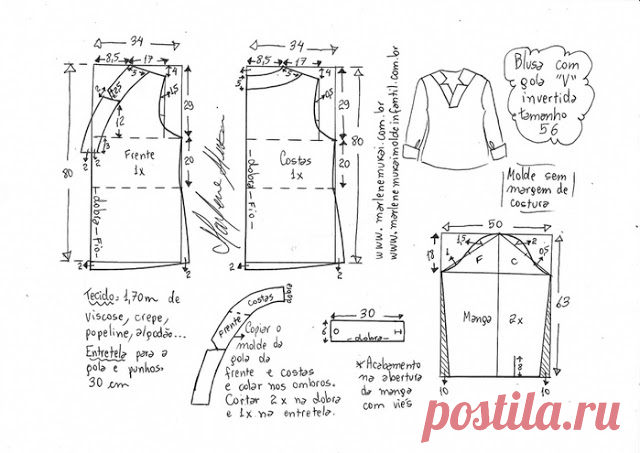 34
8,5 17
5
4
2,5
1,5
29
12
3
2 2
20
80
Frente
1x
dobra-Fio
2
2
34
8,5 17
3
5
4
0,5
29
20
80
Costas
1x
dobra-Fio
2
2
Marlene Mukai
www.marlenemukai.com.br
www.marlenemukaimoldeinfantil.com.br
Blusa com
gola "V"
invertida
tamanho
56
Molde sem
margem de
costura
Tecido: 1,70m de
viscose, crepe,
popeline, algodão...
Entretela para a
gola e punhos:
30 cm
Frente
Costas
dobra
Copiar o
molde da
gola da
frente e costas
e colar nos ombros.
Cortar 2x na dobra
e 1x na entretela.
30
6
dobra
* Acabamento
na abertura
da manga
com viés
50
18
1,5
2
1
0,5
F C
63
Manga 2x
8
10 10
postila.ru